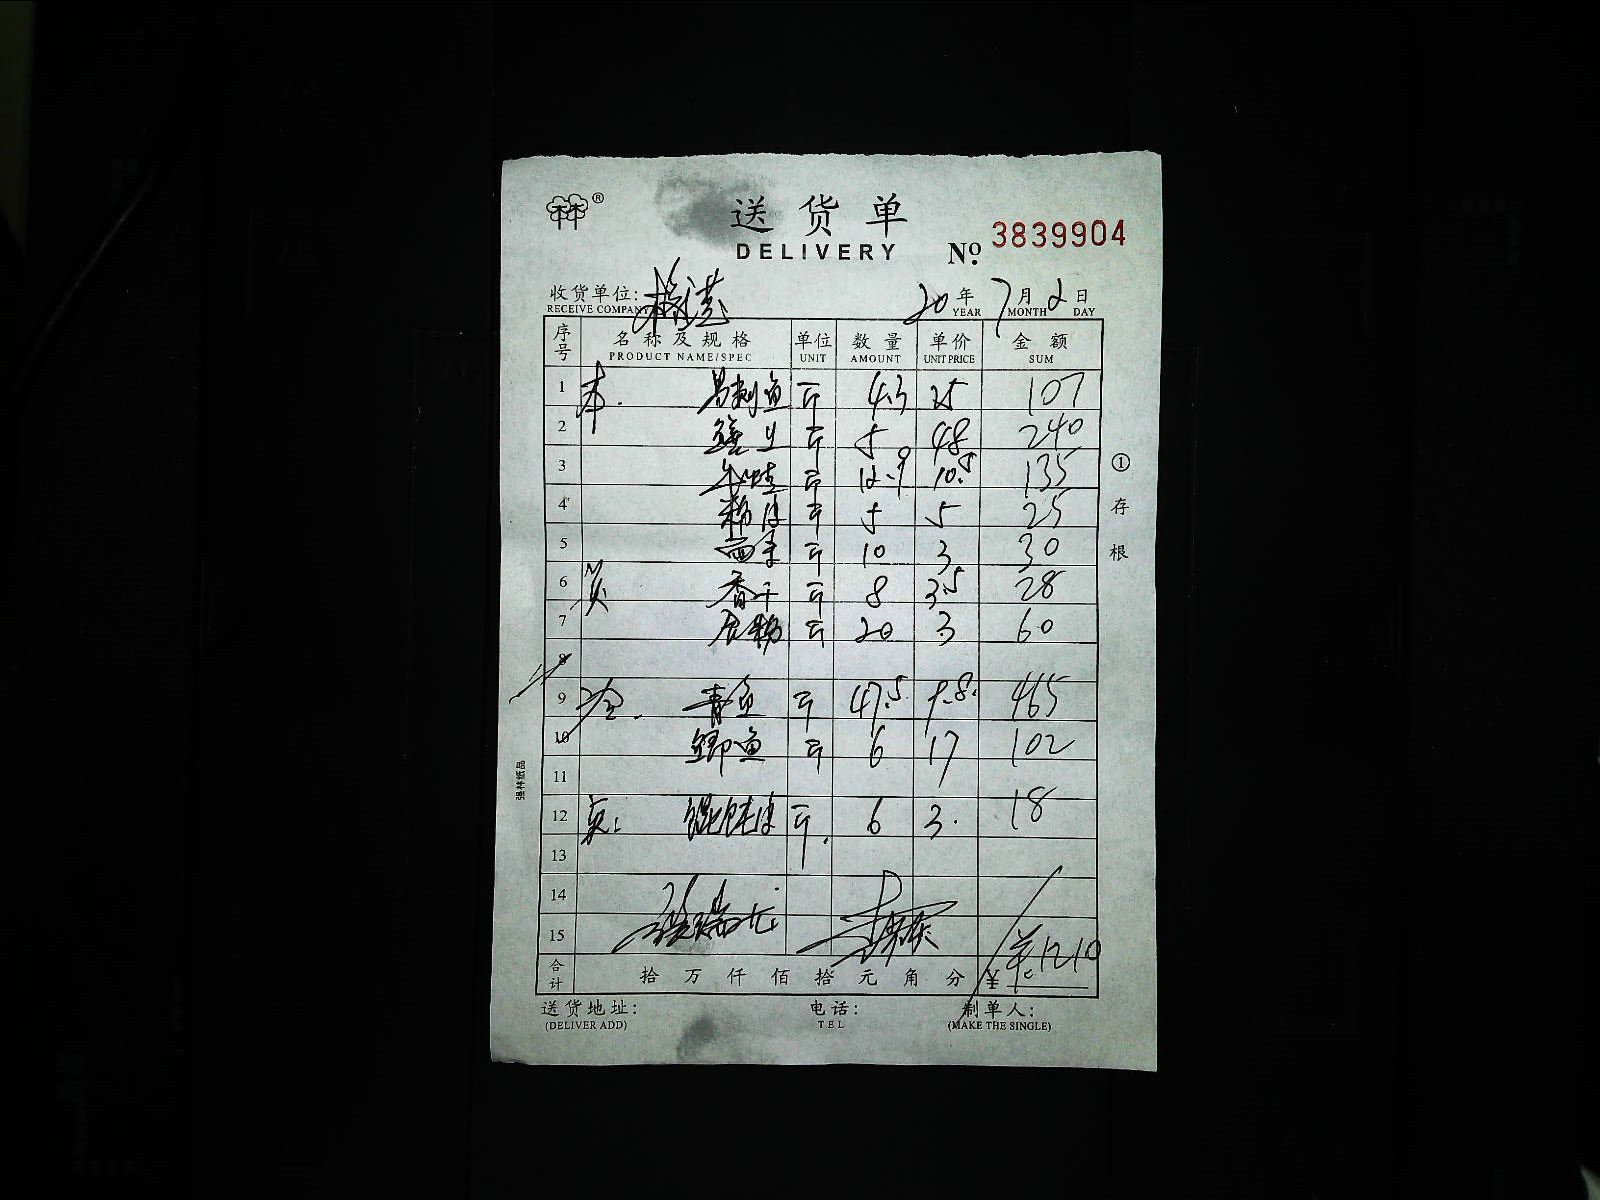 林 ®
送货单
DELIVERY
No. 3839904
收货单位:
RECEIVE COMPANY
20年 7月 2日
YEAR MONTH DAY
序号 名称及规格 单位 数量 单价 金额
PRODUCT NAME/SPEC UNIT AMOUNT UNIT PRICE SUM
1 昌刺鱼 斤 4.3 25 107
2 斤 5 48 240
3 牛蛙 斤 12.9 10.5 135
4 粉皮 斤 5 5 25
5 斤 10 3 30
6 香干 斤 8 3.5 28
7 斤 20 3 60
8
9 青鱼 斤 47.5 9.8 465
10 鲫鱼 斤 6 17 102
11
12 馄饨皮 斤 6 3 18
13
14
15
合计 拾 万 仟 佰 拾 元 角 分 ¥ ¥1210
送货地址: 电话: 制单人:
(DELIVER ADD) TEL (MAKE THE SINGLE)
①存根
强林纸品